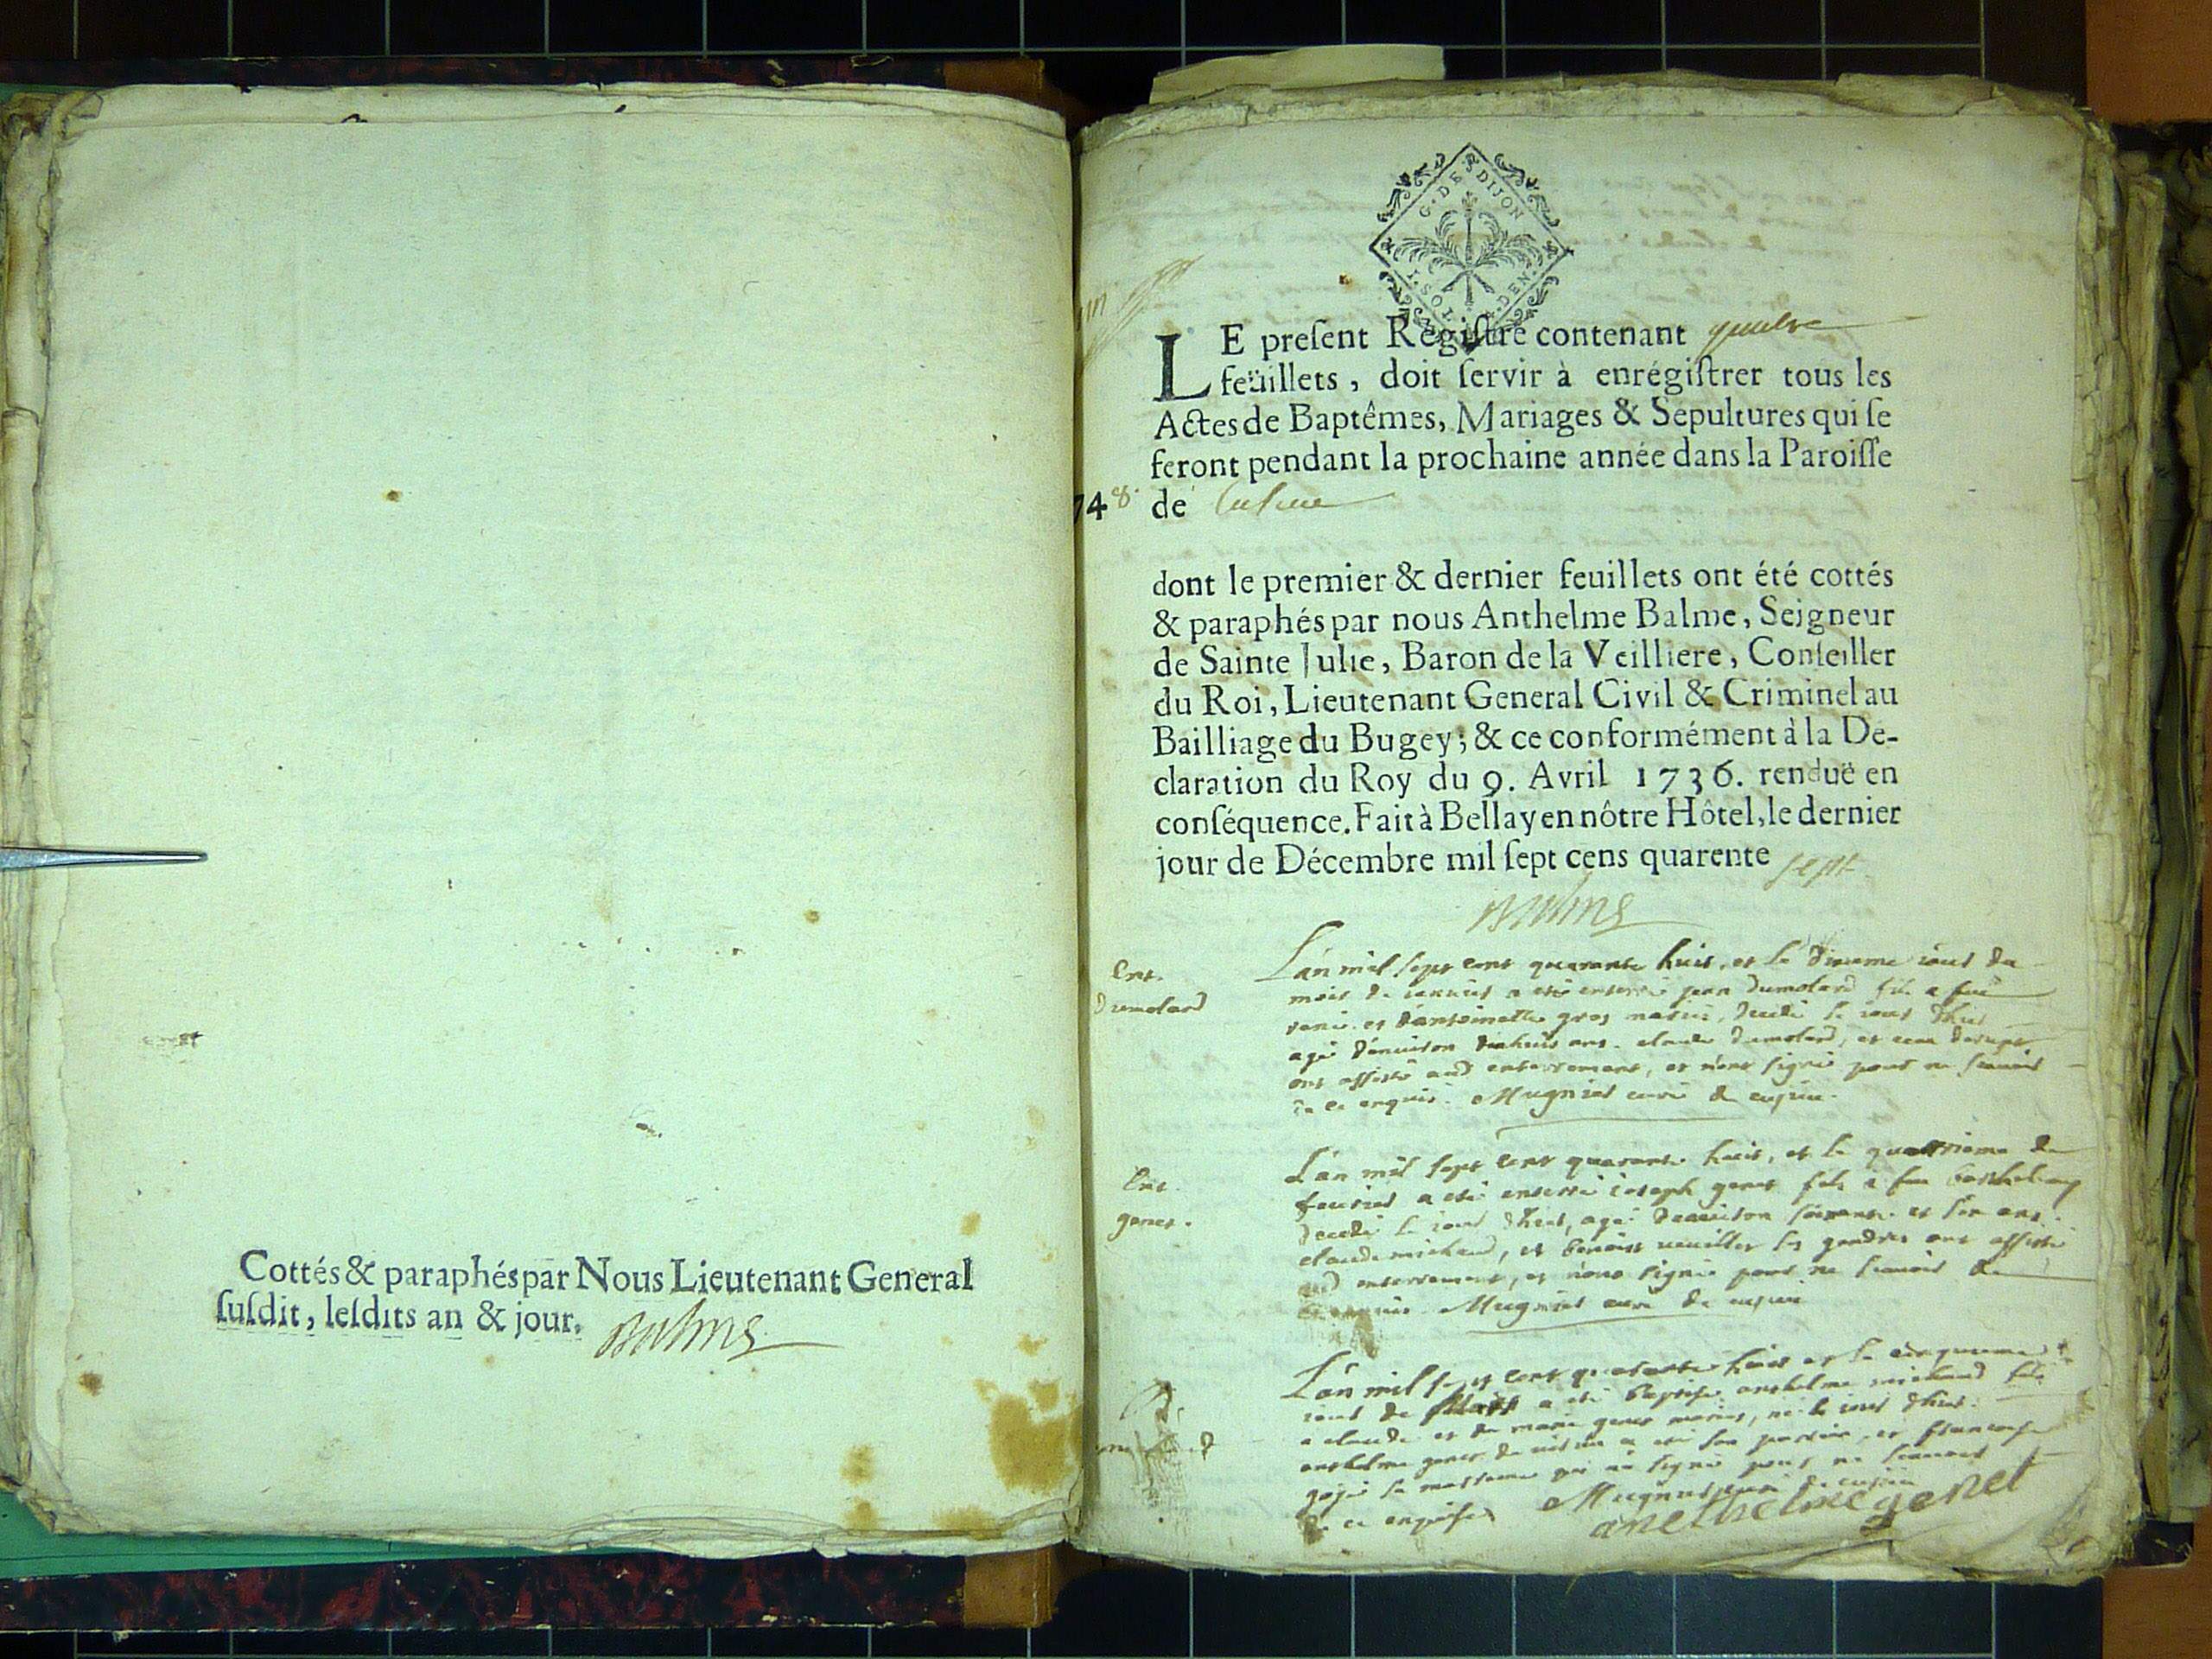 Cottés & paraphés par Nous Lieutenant General
ſuſdit, leſdits an & jour.
Balme
G. DE DIJON
SOL DEN
LE preſent Regiſtre contenant quatre
feüillets, doit ſervir à enrégiſtrer tous les
Actes de Baptêmes, Mariages & Sepultures qui ſe
feront pendant la prochaine année dans la Paroiſſe
748. de
dont le premier & dernier feuillets ont été cottés
& paraphés par nous Anthelme Balme, Seigneur
de Sainte Julie, Baron de la Veilliere, Conſeiller
du Roi, Lieutenant General Civil & Criminel au
Bailliage du Bugey; & ce conformément à la De-
claration du Roy du 9. Avril 1736. renduë en
conſéquence. Fait à Bellay en nôtre Hôtel, le dernier
jour de Décembre mil ſept cens quarente sept
Balme
Ent.
Dumolard
L'an mil sept cent quarante huit, et le jour du
mois de a eté enterré jean Dumolard fils a feu
et d'antoinette gros mariés, decedé le jour d'hier
agé d'environ dixhuit ans. claude Dumolard, et
ont assisté aud enterrement, et n'ont signé pour ne scavoir
de ce enquis. Mugnier curé de cuzieu.
Ent.
genet.
L'an mil sept cent quarante huit, et le quatrieme de
fevrier a eté enterré joseph genet fils a feu barthelemy
decedé le jour d'hier, agé d'environ soixante et ans.
claude michaud, et benoist ses gendres ont assisté
aud enterrement, et n'ont signé pour ne scavoir de
ce enquis. Mugnier curé de cuzieu
L'an mil sept cent quarante huit et le cinquieme
jour de Mars a eté baptisé anthelme michaud fils
a claude et de marie genet mariés, né le jour d'hier.
anthelme genet de a eté son parrain, et françoise
sa marraine qui n'a signé pour ne scavoir
de ce enquise. Mugnier curé de cuzieu
anethelme genet